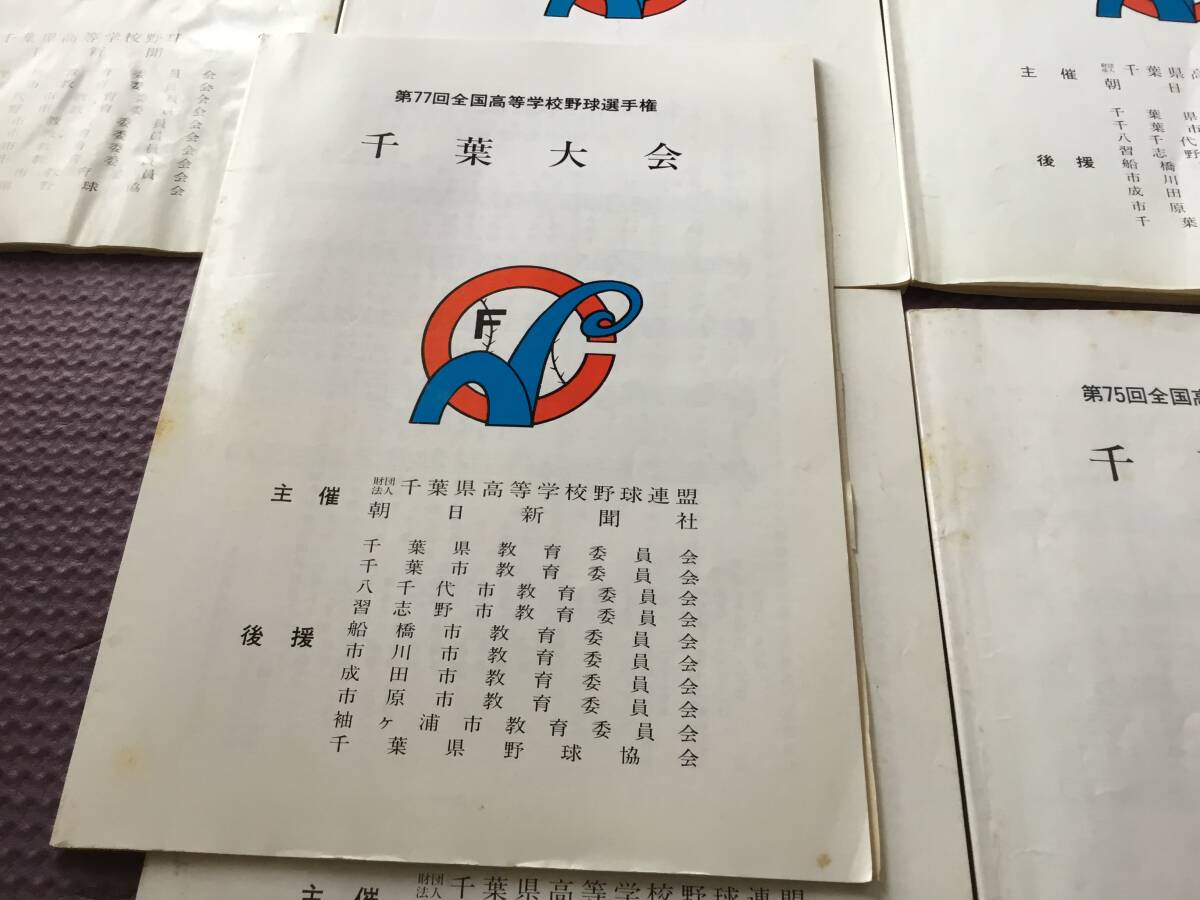 第77回全国高等学校野球選手権
千葉大会
F
主催 財団法人 千葉県高等学校野球連盟
朝日新聞社
後援
千葉県教育委員会
千葉市教育委員会
八千代市教育委員会
習志野市教育委員会
船橋市教育委員会
市川市教育委員会
成田市教育委員会
市原市教育委員会
袖ヶ浦市教育委員会
千葉県野球協会
主催 財団法人 千葉県高
朝日
後援
千葉県
千葉市
八千代
習志野
船橋
市川
成田
市原
千葉
第75回全国高
千
主催 財団法人 千葉県高等学校野球連盟